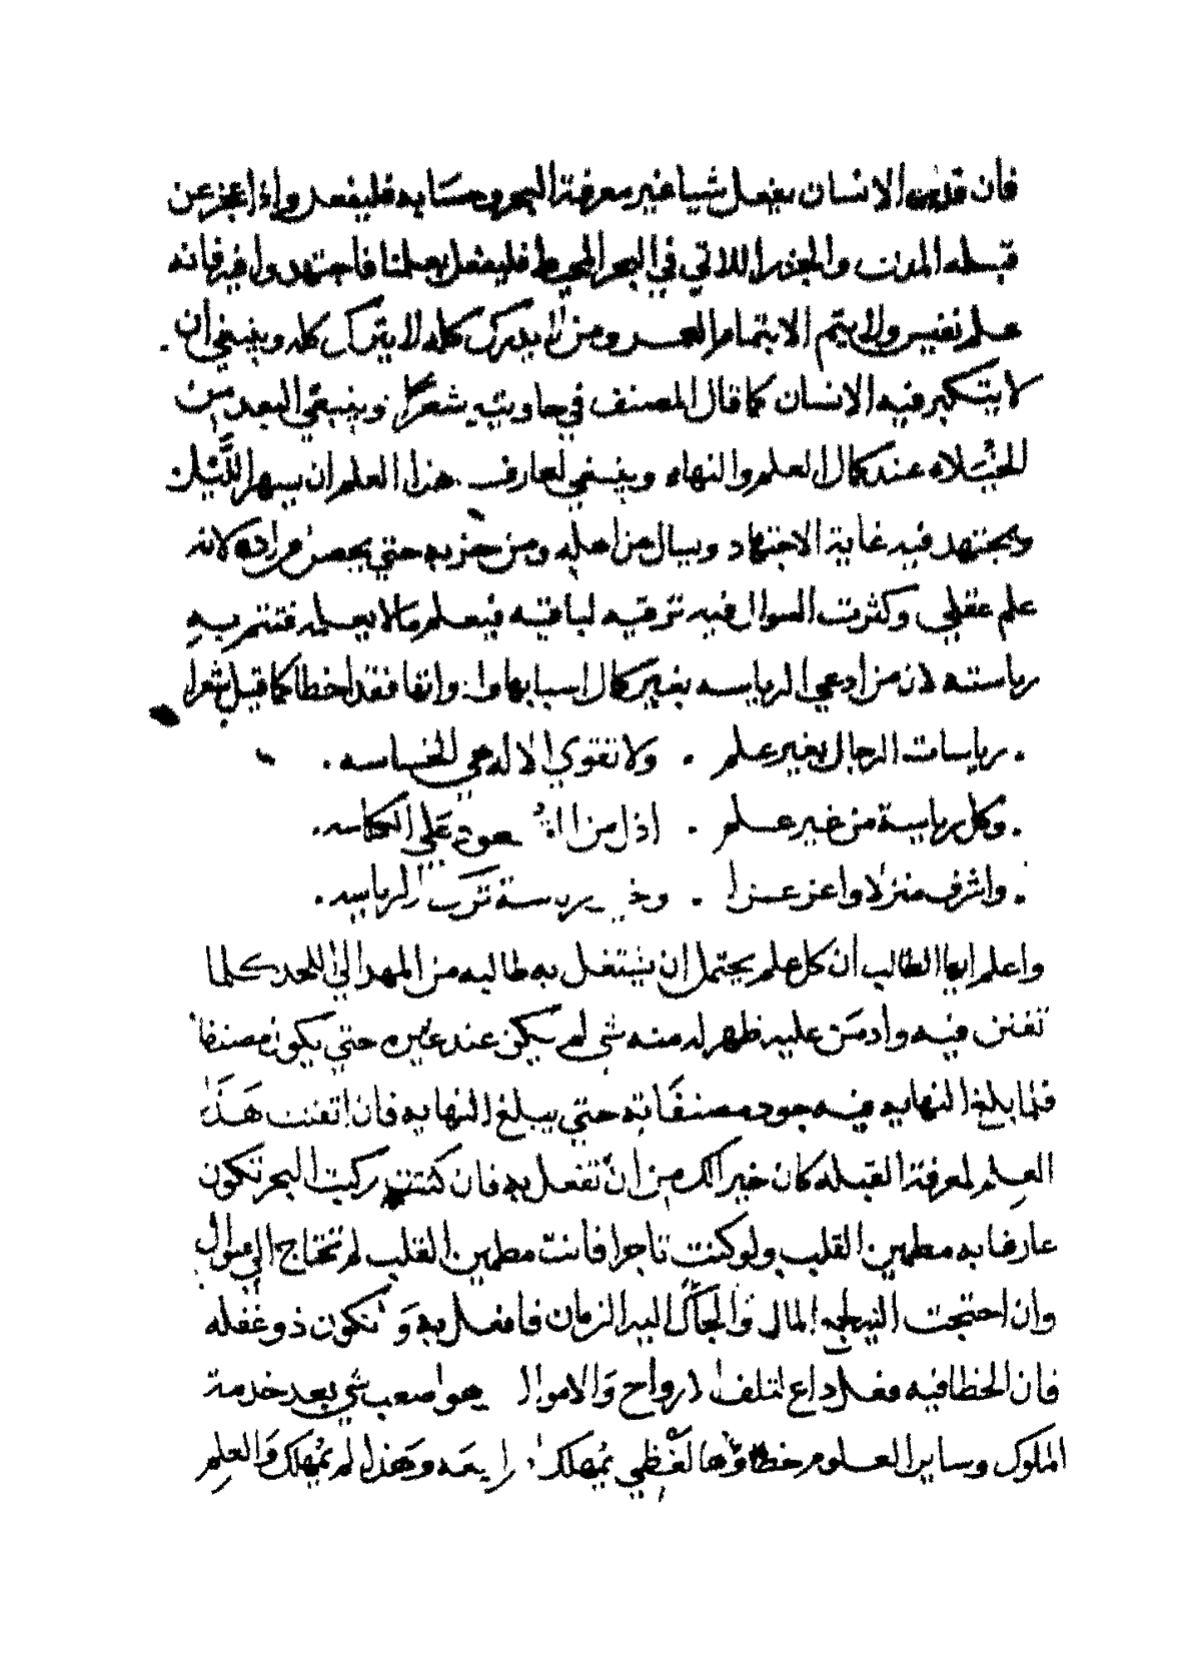 فان قدر الانسان يفعل شيا غير معرفة البحر وحسابه فليفعل واذا عجز عن
قبله المدن والجزر اللاتي في البحر المحيط فليفعل بعلمنا فاجتهدوا فيه فانه
علم نفيس ولا يتم الا بتمام العمر ومن لا يدرك كله لا يترك كله وينبغي ان
لا يتكبر فيه الانسان كما قال المصنف في حاويته شعرا وينبغي البعد من
الخيلاه عند كمال العلم والنهاه وينبغي لعارف هذا العلم ان يسهر الليل
ويجتهد فيه غاية الاجتهاد ويسال من اهله ومن حزبه حتي يحصل مراده لانه
علم عقلي وكثرت السوال فيه ترقيه لباقيه فيعلم ما لا يعلمه فتتم به
رياسته لان من ادعي الرياسه بغير كمال اسبابها وانواتفا فقد اخطا كما قيل شعرا
رياسات الرجال بغير علم . ولا تقوي الاله هي الخساسه .
وكل رياسة من غير علم . اذل من القعود علي الكناسه .
واشرف منزلا واعز عزا . وخير رياسة ترك الرياسه .
واعلم ايها الطالب ان كل علم يحتمل ان يشتغل به طالبه من المهد الي اللحد كلما
تفنن فيه وادمن عليه ظهر له منه شي لم يكن عند غيره حتي يكون مصنفا
فلما بلغ النهايه فيه جود مصنفاته حتي يبلغ النهايه فان اتقنت هذا
العلم لمعرفة القبله كان خيرا لك من ان تفعل به فان كنت ركبت البحر تكون
عارفا به مطمين القلب ولو كنت تاجرا فانت مطمين القلب لم تحتاج الي سوال
وان احتجت اليه لجمع المال والجاك اليه الزمان فافعل به ولا تكون ذو غفله
فان الخطا فيه فعل داع لتلف الارواح والاموال هو اصعب شي بعد خدمة
الملوك وساير العلوم خطاوها لفظي يمهلك تراجعه وهذا لم يمهلك والعلم